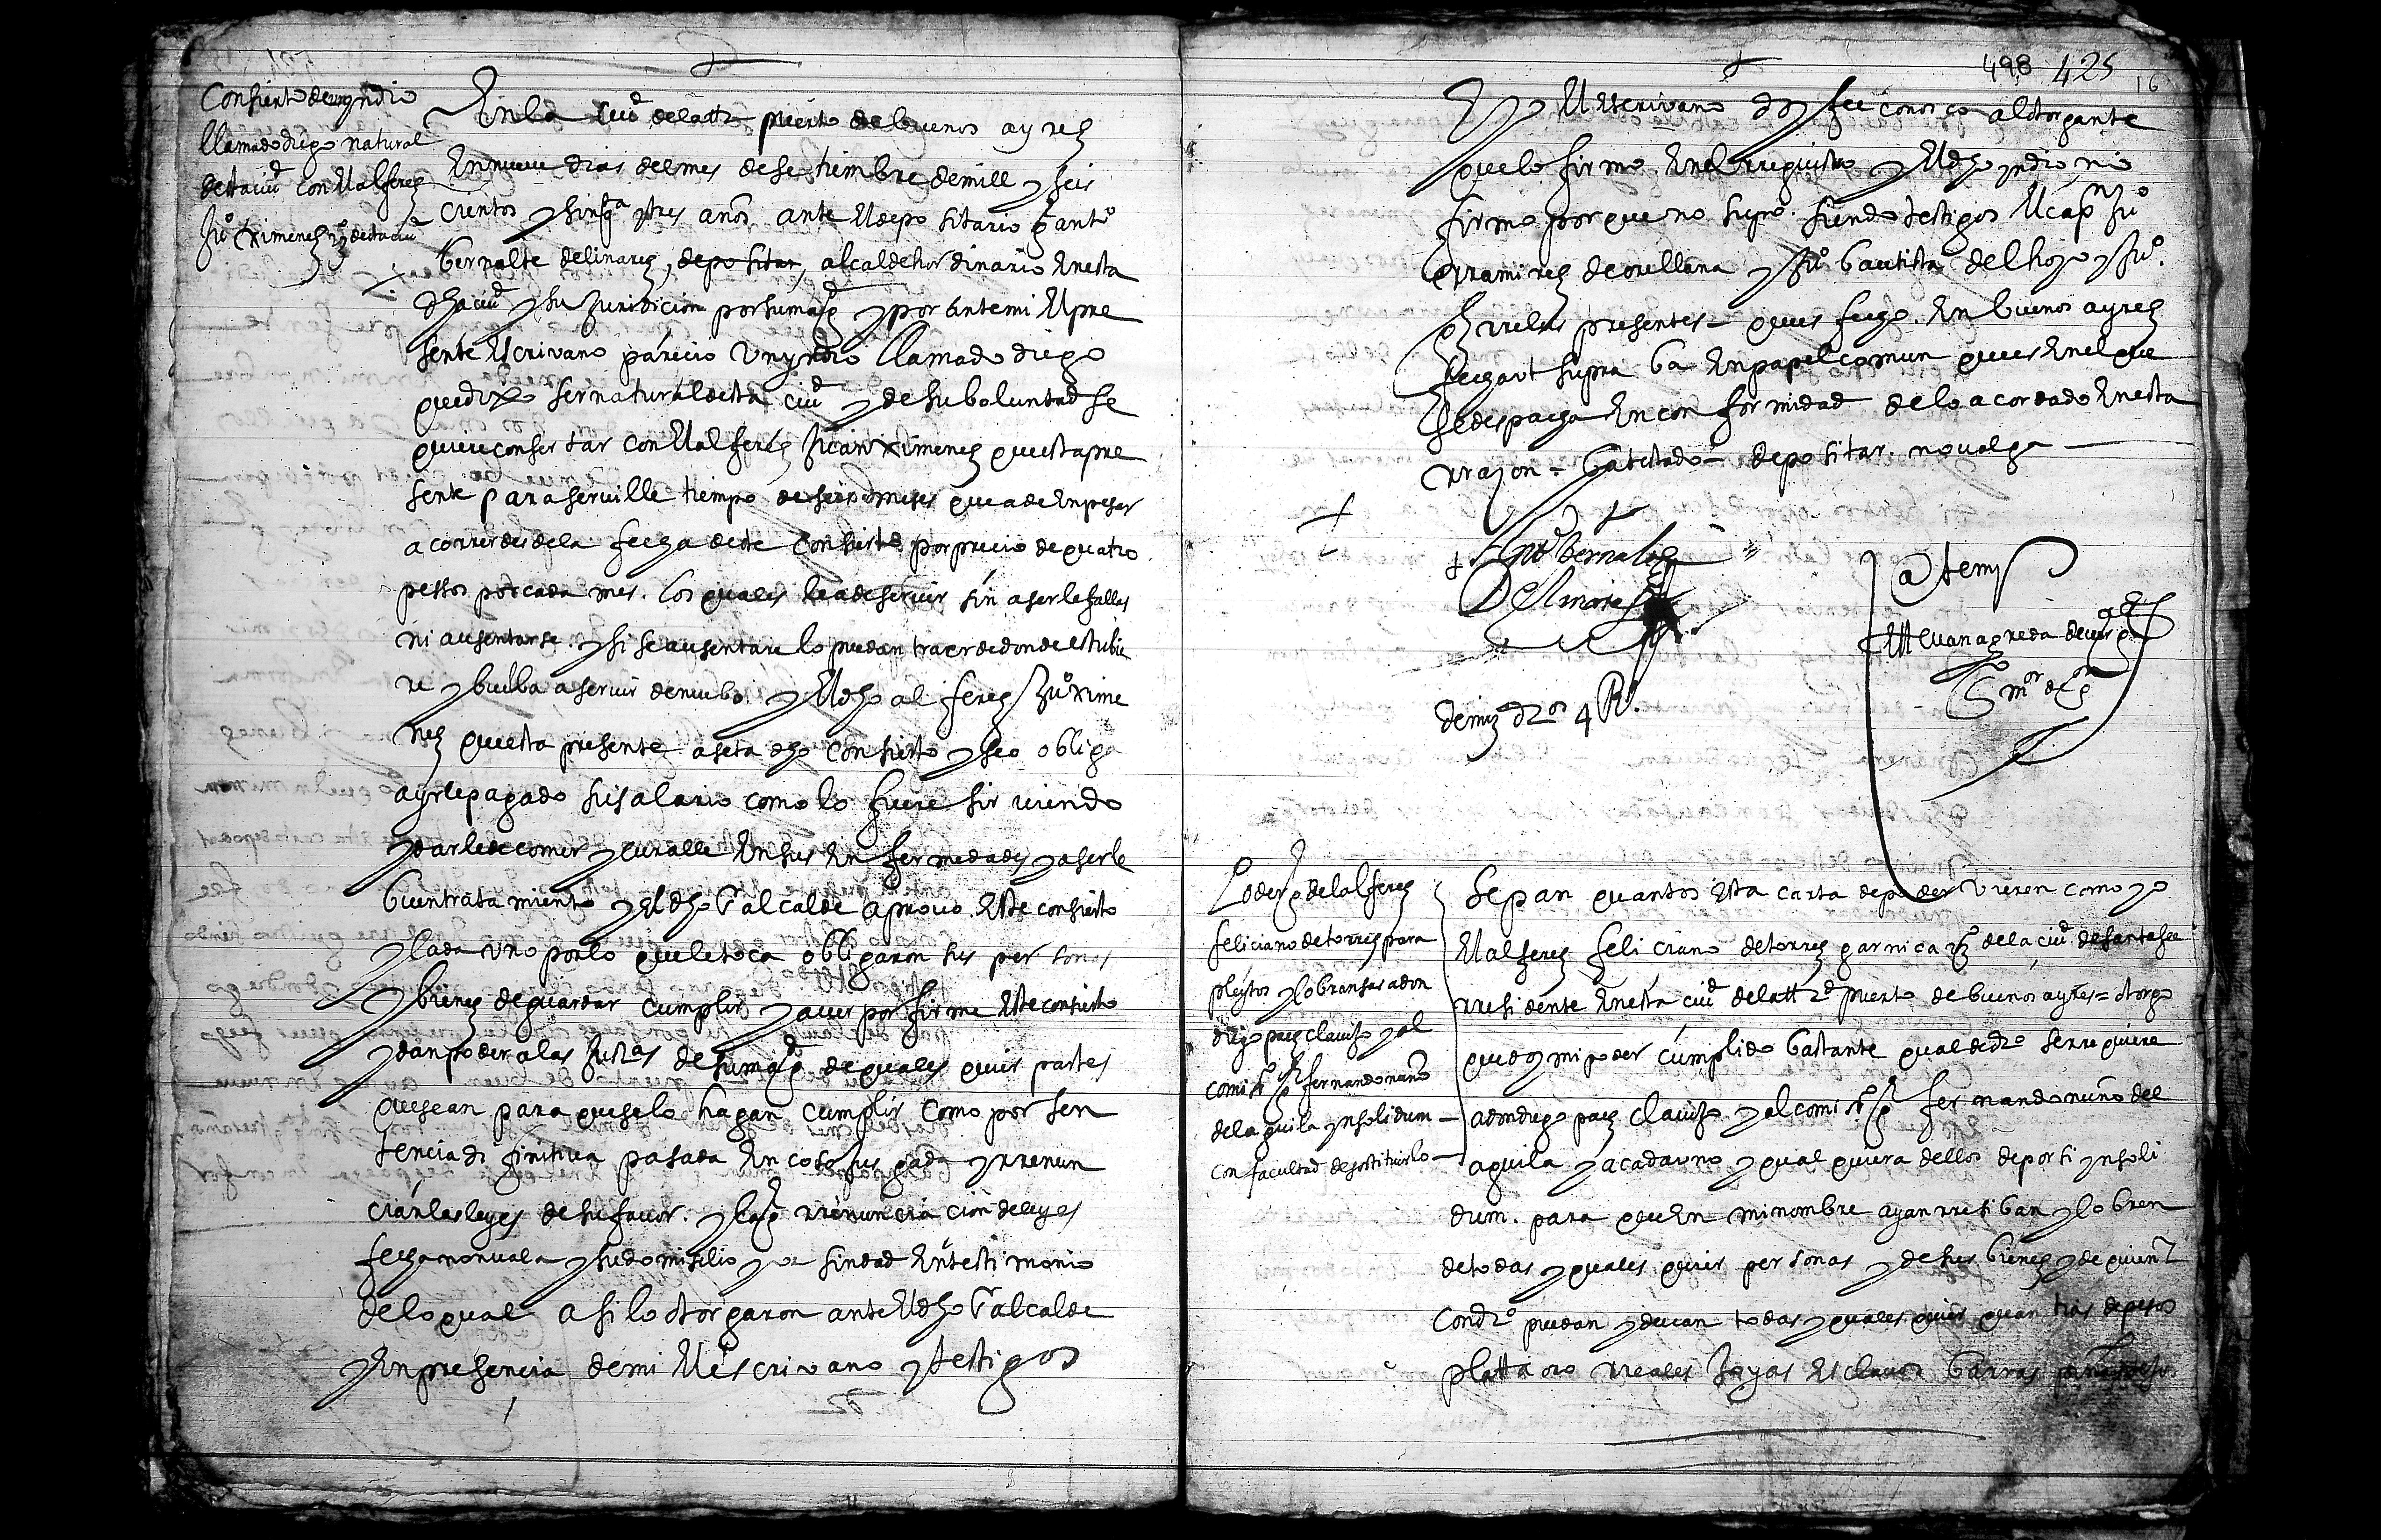 Consierto de un yndio
llamado diego natural
desta ciud con el alferes
Juo Ximenes vo desta ciud
En la ciud de la ttd puerto de buenos ayres
En nueve dias del mes de setiembre de mill y seis
cientos y sinqta y tres anos ante el depositario anto
bernalte delinares, depositar, alcalde hordinario En esta
dha ciud y su Juridicion por su magd y por ante mi El pre
sente Escrivano parecio un yndio llamado diego
que dixo ser natural desta ciud y de su boluntad se
quiere consertar con El alferes Juan ximenes que esta pre
sente para serville tiempo de seis meses que a de Enpesar
a correr desde la fecha deste consierto por precio de quatro
pessos por cada mes. los quales le a de servir sin aserle fallas
ni ausentarse. y si se ausentare lo puedan traer de donde estubie
re y buelba a servir de nuebo. y El dho alferes Juo xime
nes que esta presente aseta dho consierto y se obliga
a yrle pagado su salario como lo fuere sirviendo
y darle de comer y curalle En sus Enfermedades y aserle
buen tratamiento y El dho alcalde aprovo Este consierto
y cada uno por lo que le toca obligaron sus personas
y bienes de guardar cumplir y aver por firme Este consierto
y dan poder a las Justas de su magd de quales quier partes
que sean para que se lo hagan cumplir como por sen
tencia difinitiva pasada En cosa jusgada y rrenun
cian las leyes de su favor. y la rrenunciacion de leyes
fecha non vala y su domisilio y vesindad En testimonio
de lo qual asi lo otorgaron ante El dho alcalde
y En presencia de mi El escrivano y testigos
498 425
16
E yo El Escrivano doy fee conosco al otorgante
que lo firmo En el rregistro y El dho yndio no
firmo porque no supo siendo testigos El capn Juo
rramires de orellana y Juo bautista del hoyo y Juo
presentes que es fecho En buenos ayres
fecha ut supra ba En papel comun que es En el que
se despacha En conformidad de lo acordado En esta
rrazon - ba testado - depositar. no valga
Anto Bernalte
De linares
Ante my
de mis dros 4 Rs
Poder del alferes
feliciano de torres para
pleytos y cobransas a don
diego paes clavijo y al
comiso fernando nuño
del aguila ynsolidum
con facultad de sostituirlo
Sepan quantos Esta carta de poder vieren como yo
El alferes feliciano de torres garnica vo de la ciud de santa fee
rresidente En esta ciud de la ttd puerto de buenos ayres = otorgo
que doy mi poder cumplido bastante qual de dro se rrequiere
a don diego paes clavijo y al comiso fernando nuño del
aguila y a cada uno y qual quiera dellos de por si ynsoli
dum. para que En mi nombre ayan rresiban y cobren
de todas y quales quier personas y de sus bienes y de quien
con dro puedan y devan todas y quales quier quantias de pesos
platta oro rreales Joyas Esclavos barras